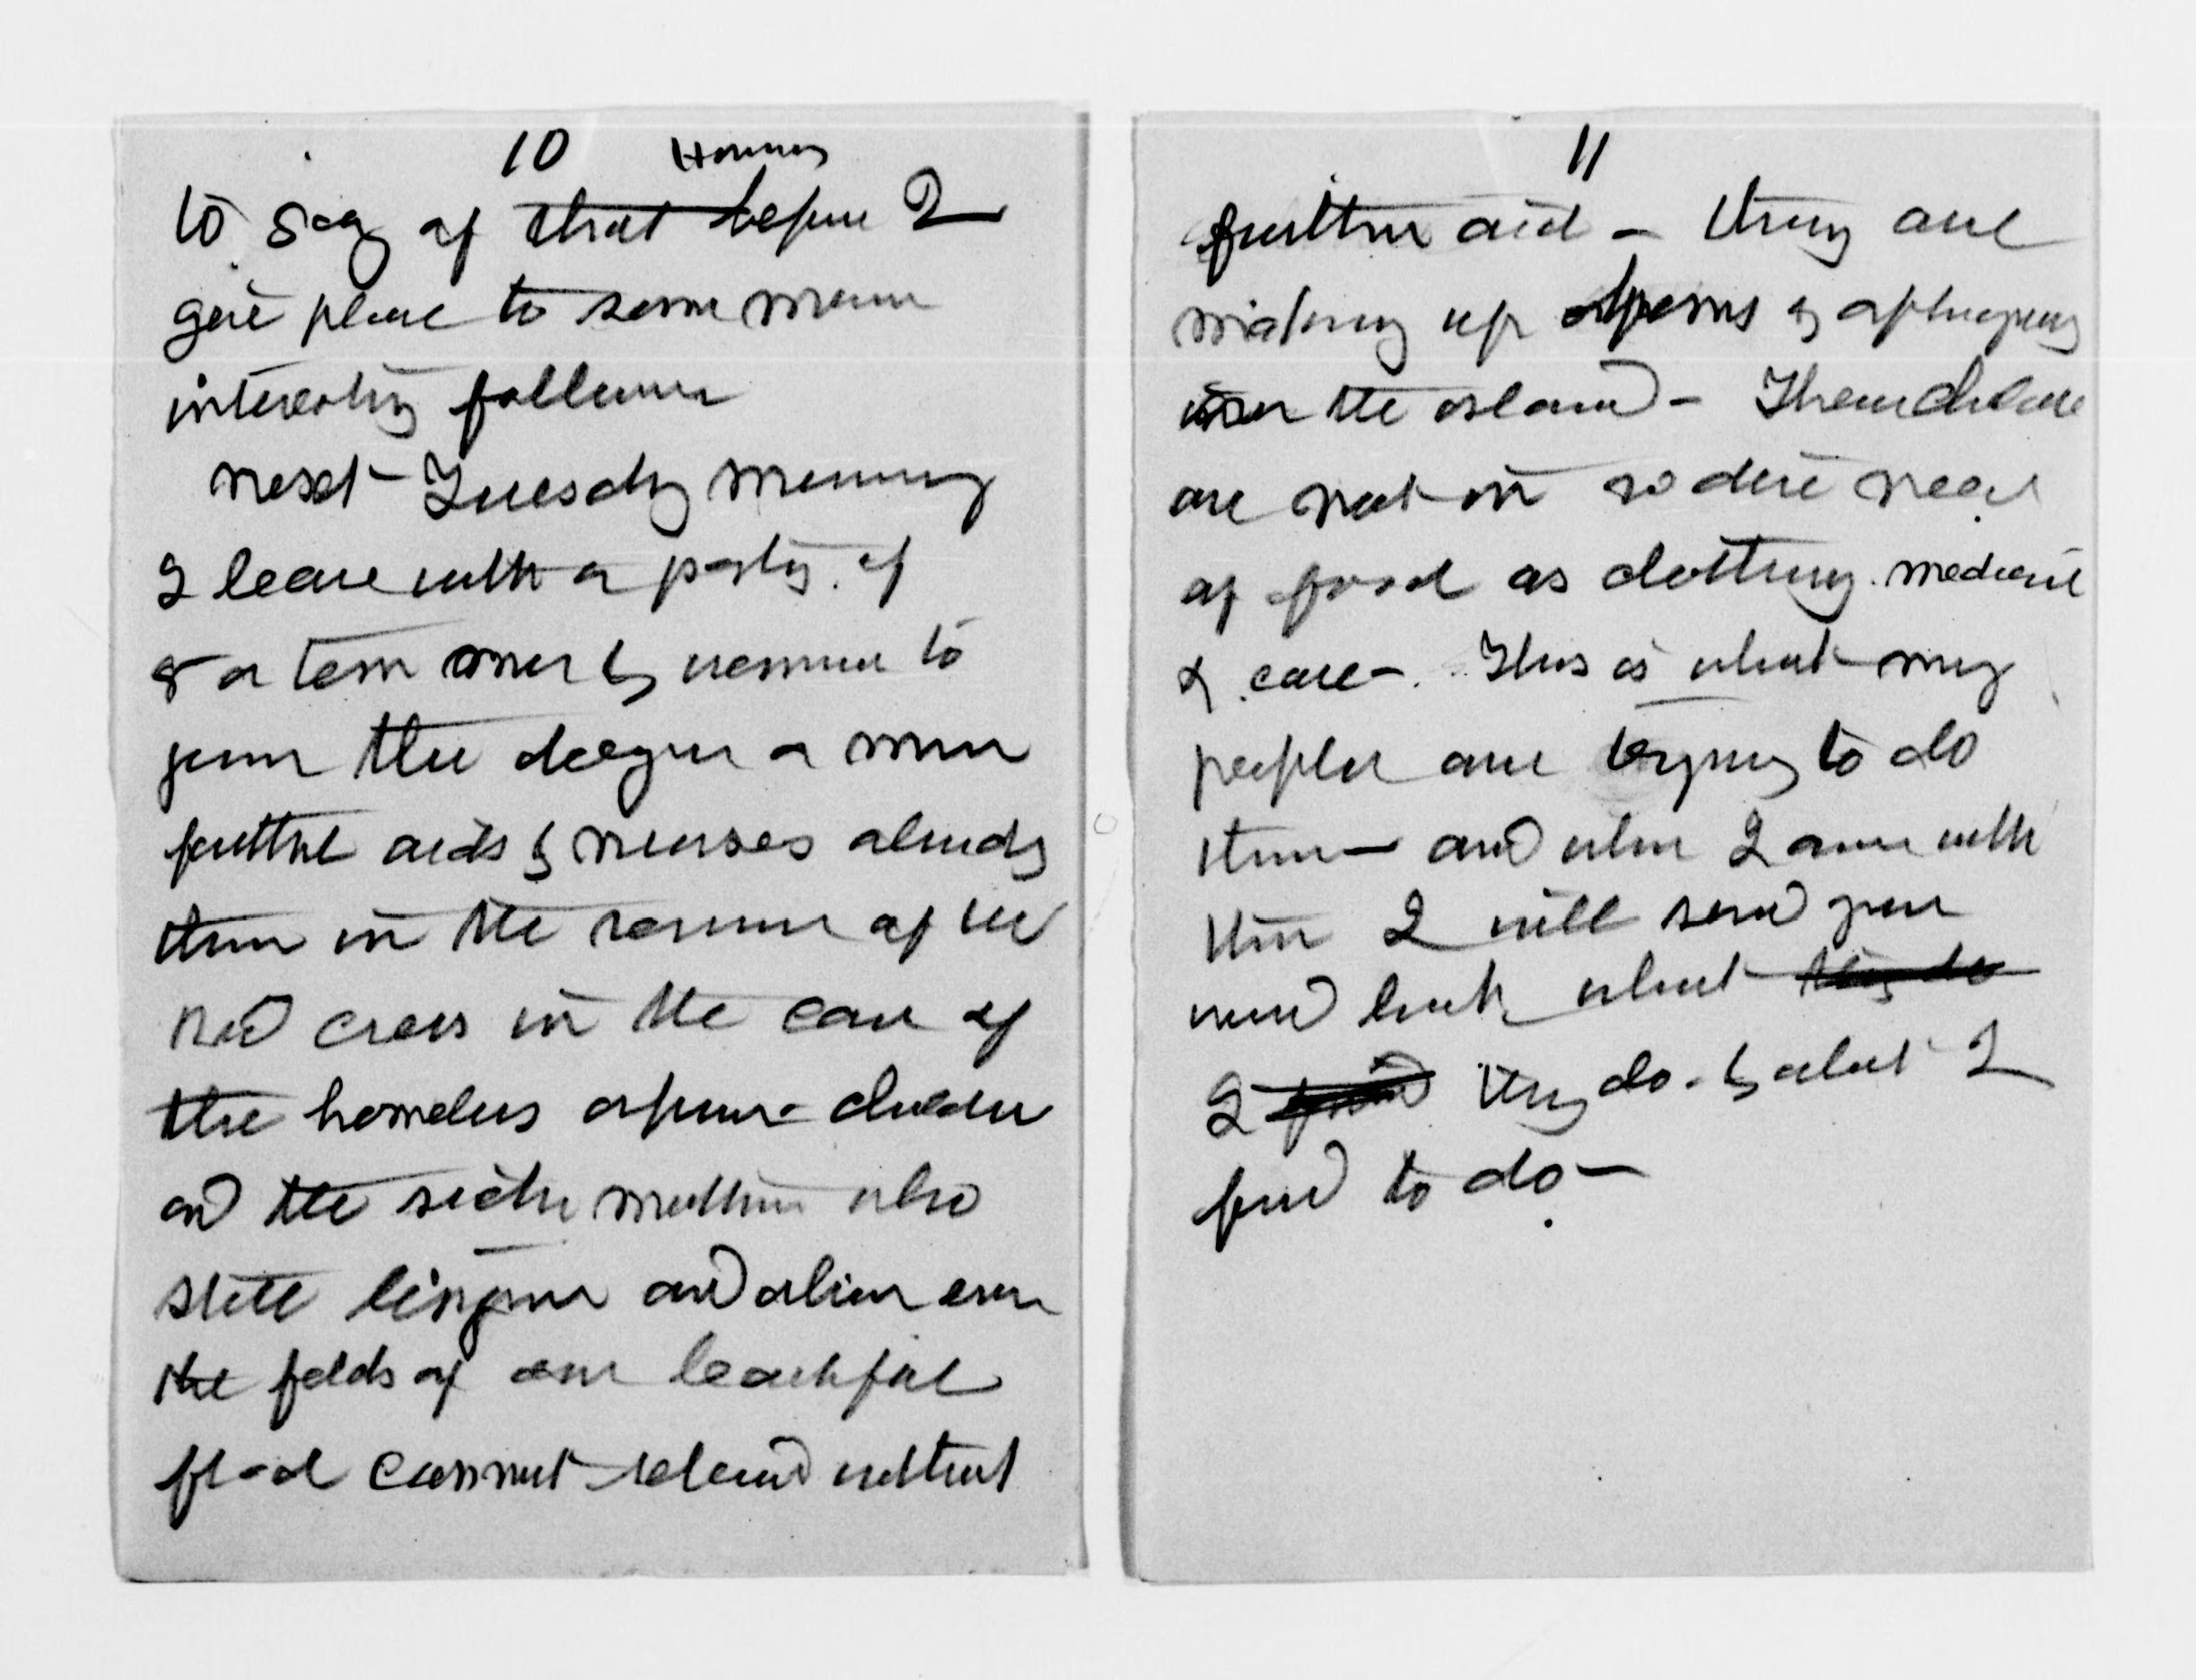 10
to say of that before I
give place to some more
interesting follower
next Tuesday morning
I leave with a party of
8 or ten men & women to
join the dozen or more
faithful aids & nurses already
there in the rooms of the
Red Cross in the care of
the homeless orphan children
and the sick mothers who
still linger and alive even
the folds of our beautiful
flood cannot without
11
further aid - They are
making up of
over the island - These children
are not in so dire need
of food as clothing. medicine
& care -. This is what my
people are trying to do
there - and when I am with
them I will send you
word back what they do
I find they do - & what I
find to do -